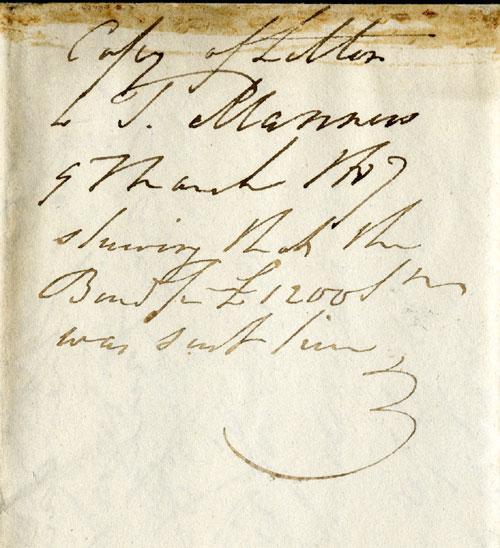 Copy of Letter
to T. Manners
9 March
shewing that the
Bond for £1200
was sent him